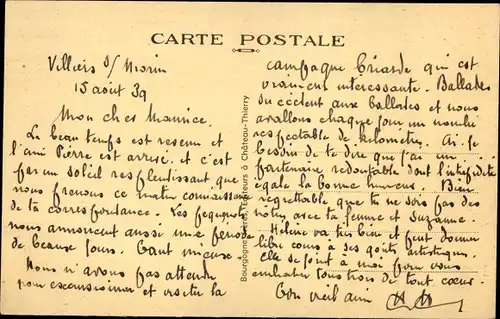 CARTE POSTALE
Villiers s/ Morin
15 août 39
Mon cher Maurice.
Le beau temps est revenu et
l'ami Pierre est arrivé et c'est
par un soleil resplendissant que
nous prenons ce matin connaissance
de ta correspondance. Les
nous annoncent aussi une période
de beaux jours. Tant mieux.
Nous n'avons pas attendu
pour excursionner et visiter la
Bourgogne Frères, Editeurs à Château-Thierry
campagne Briarde qui est
vraiment intéressante. Ballades
succèdent aux ballades et nous
avallons chaque jour un nombre
respectable de kilomètres. Ai-je
besoin de te dire que j'ai un
partenaire redoutable dont l'intrépidité
égale la bonne humeur. Bien
regrettable que tu ne sois pas des
notres avec ta femme et Suzanne.
Hélène va très bien et peut donner
libre cours à ses goûts artistiques.
Elle se joint à moi pour vous
embrasser tous trois de tout coeur.
Ton vieil ami